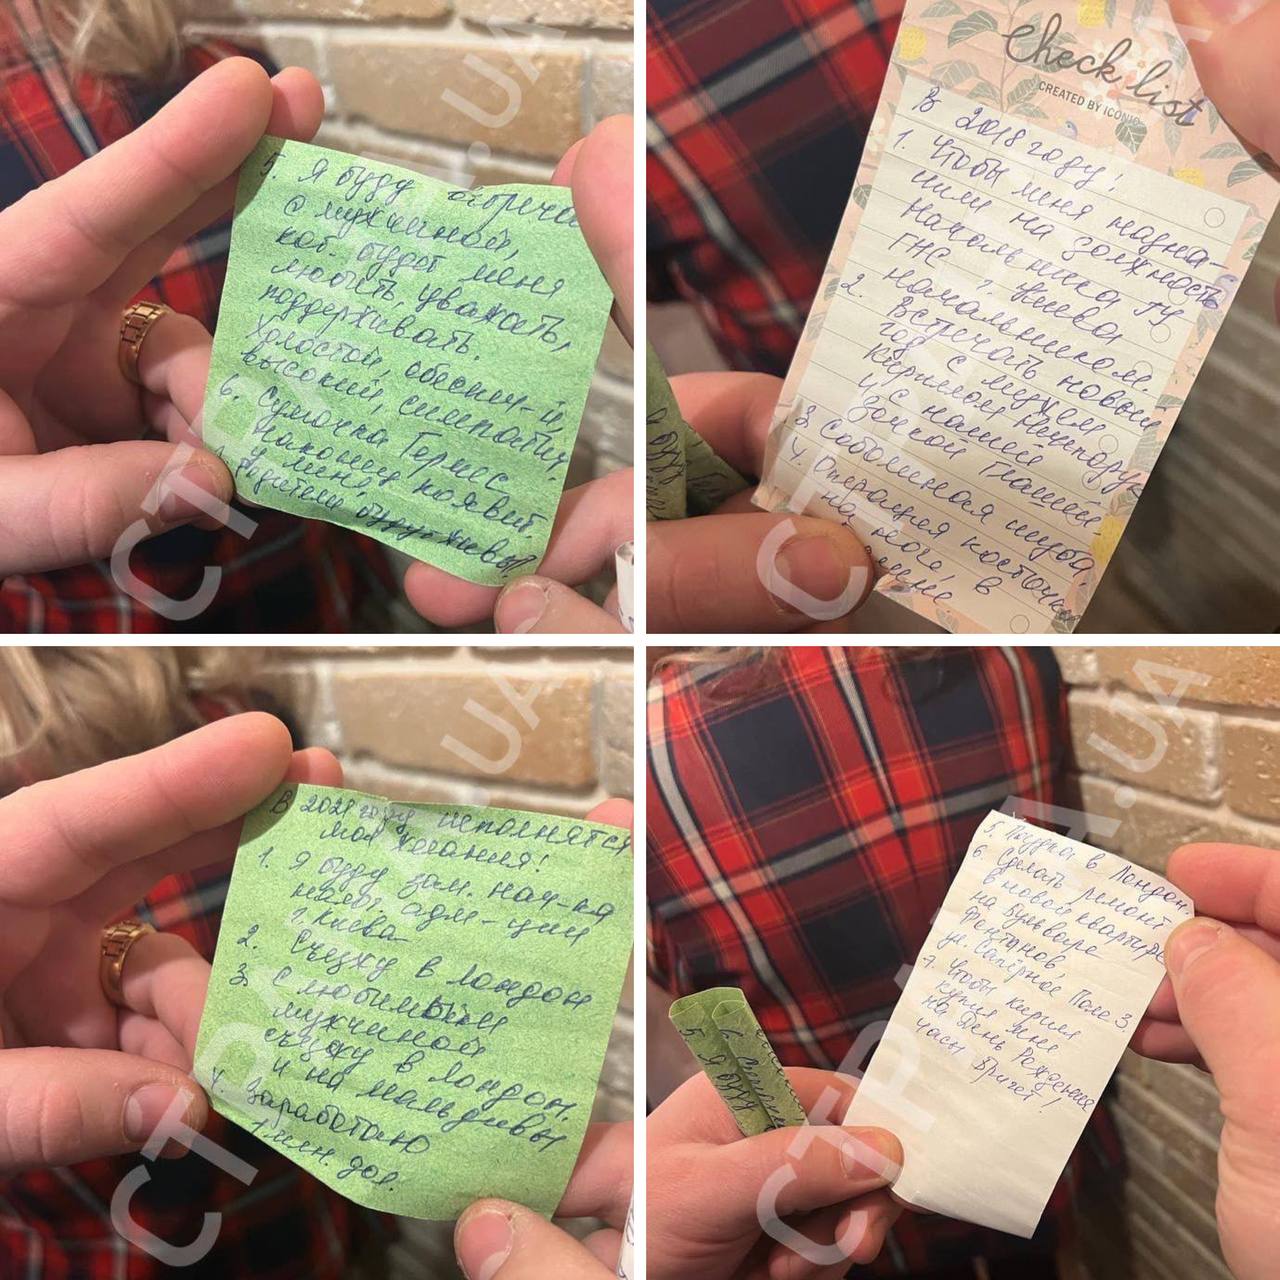 5. Я буду встреча
с мужчиной,
кот. будет меня
любить, уважать,
поддерживать.
Холостой, обеспеч-й,
высокий, симпатич.
6. Сумочка Гермес
наконец появит.
у меня,
Check list
CREATED BY ICONIC
В 2018 году:
1. Чтобы меня назна-
чили на должность
начальника ГУ
ГНС г. Киева
начальником
2. Встречать новый
год с мужем
Кириллом
и с нашей
3. Соболиная шуба
4. Операция косточка
на ноге, в
В 2021 году исполнятся
мои желания!
1. Я буду зам. нач-ка
налог. адм-ции
г. Киева
2. Съезжу в Лондон
3. С любимым
мужчиной
съезжу в Лондон
и на мальдивы
4. Заработаю
1 млн. дол.
5. Поездка в Лондон.
6. Сделать ремонт
в новой квартире
на Бульваре
Фонтанов
ул. Сапёрное Поле 3.
7. Чтобы Кирилл
купил мне
на День Рождения
часы Бригет!
5. Я буду
6.
СТРАНА.UA
СТРАНА.UA
СТРАНА.UA
СТРАНА.UA